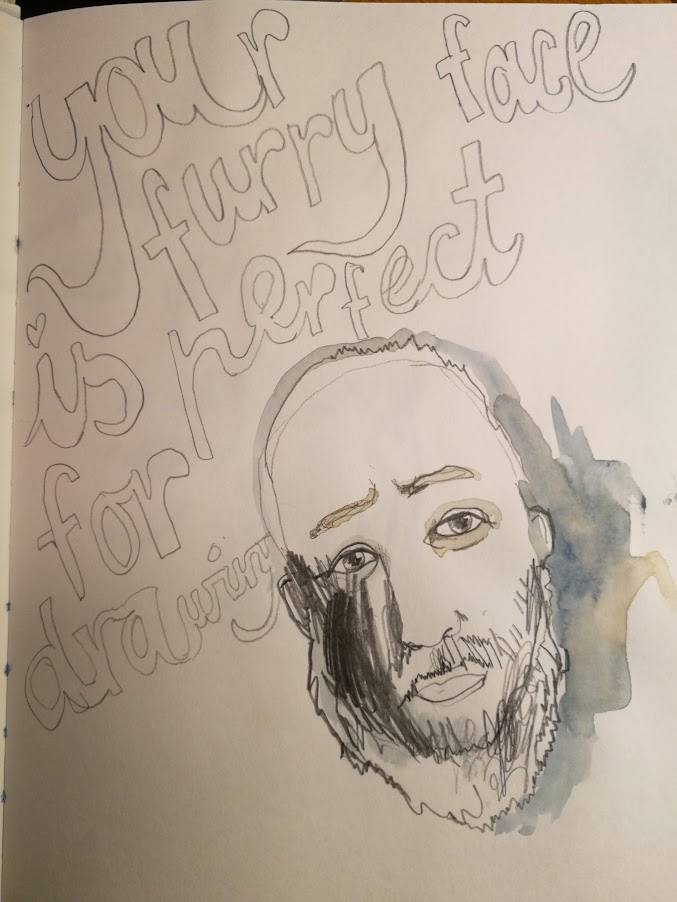 your face
furry
is perfect
for
drawing